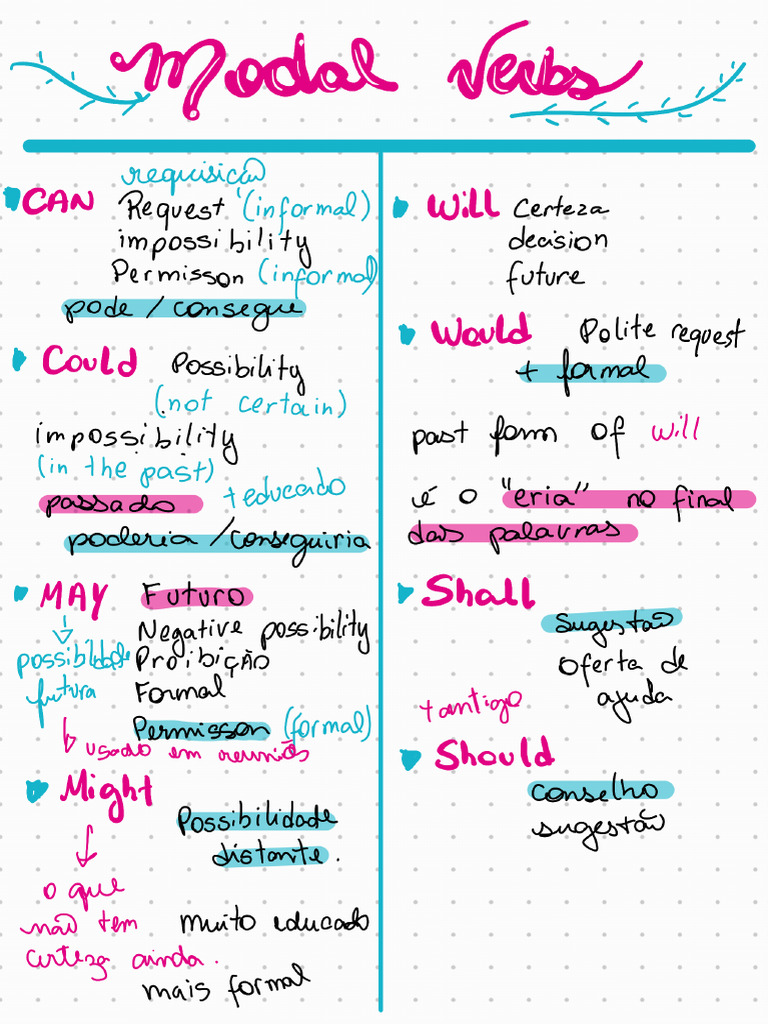 Modal Verbs
requisição
CAN Request (informal)
impossibility
Permisson (informal)
pode / consegue
Could Possibility
(not certain)
impossibility
(in the past)
passado + educado
poderia / conseguiria
MAY Futuro
Negative possibility
possibilidade Proibição
futura Formal
Permisson (formal)
usado em reuniões
Might
Possibilidade
distante.
o que
não tem muito educado
certeza ainda.
mais formal
Will Certeza
decision
future
Would Polite request
+ formal
past form of will
é o "eria" no final
das palavras
Shall
Sugestão
Oferta de
ajuda
+ antigo
Should
conselho
sugestão